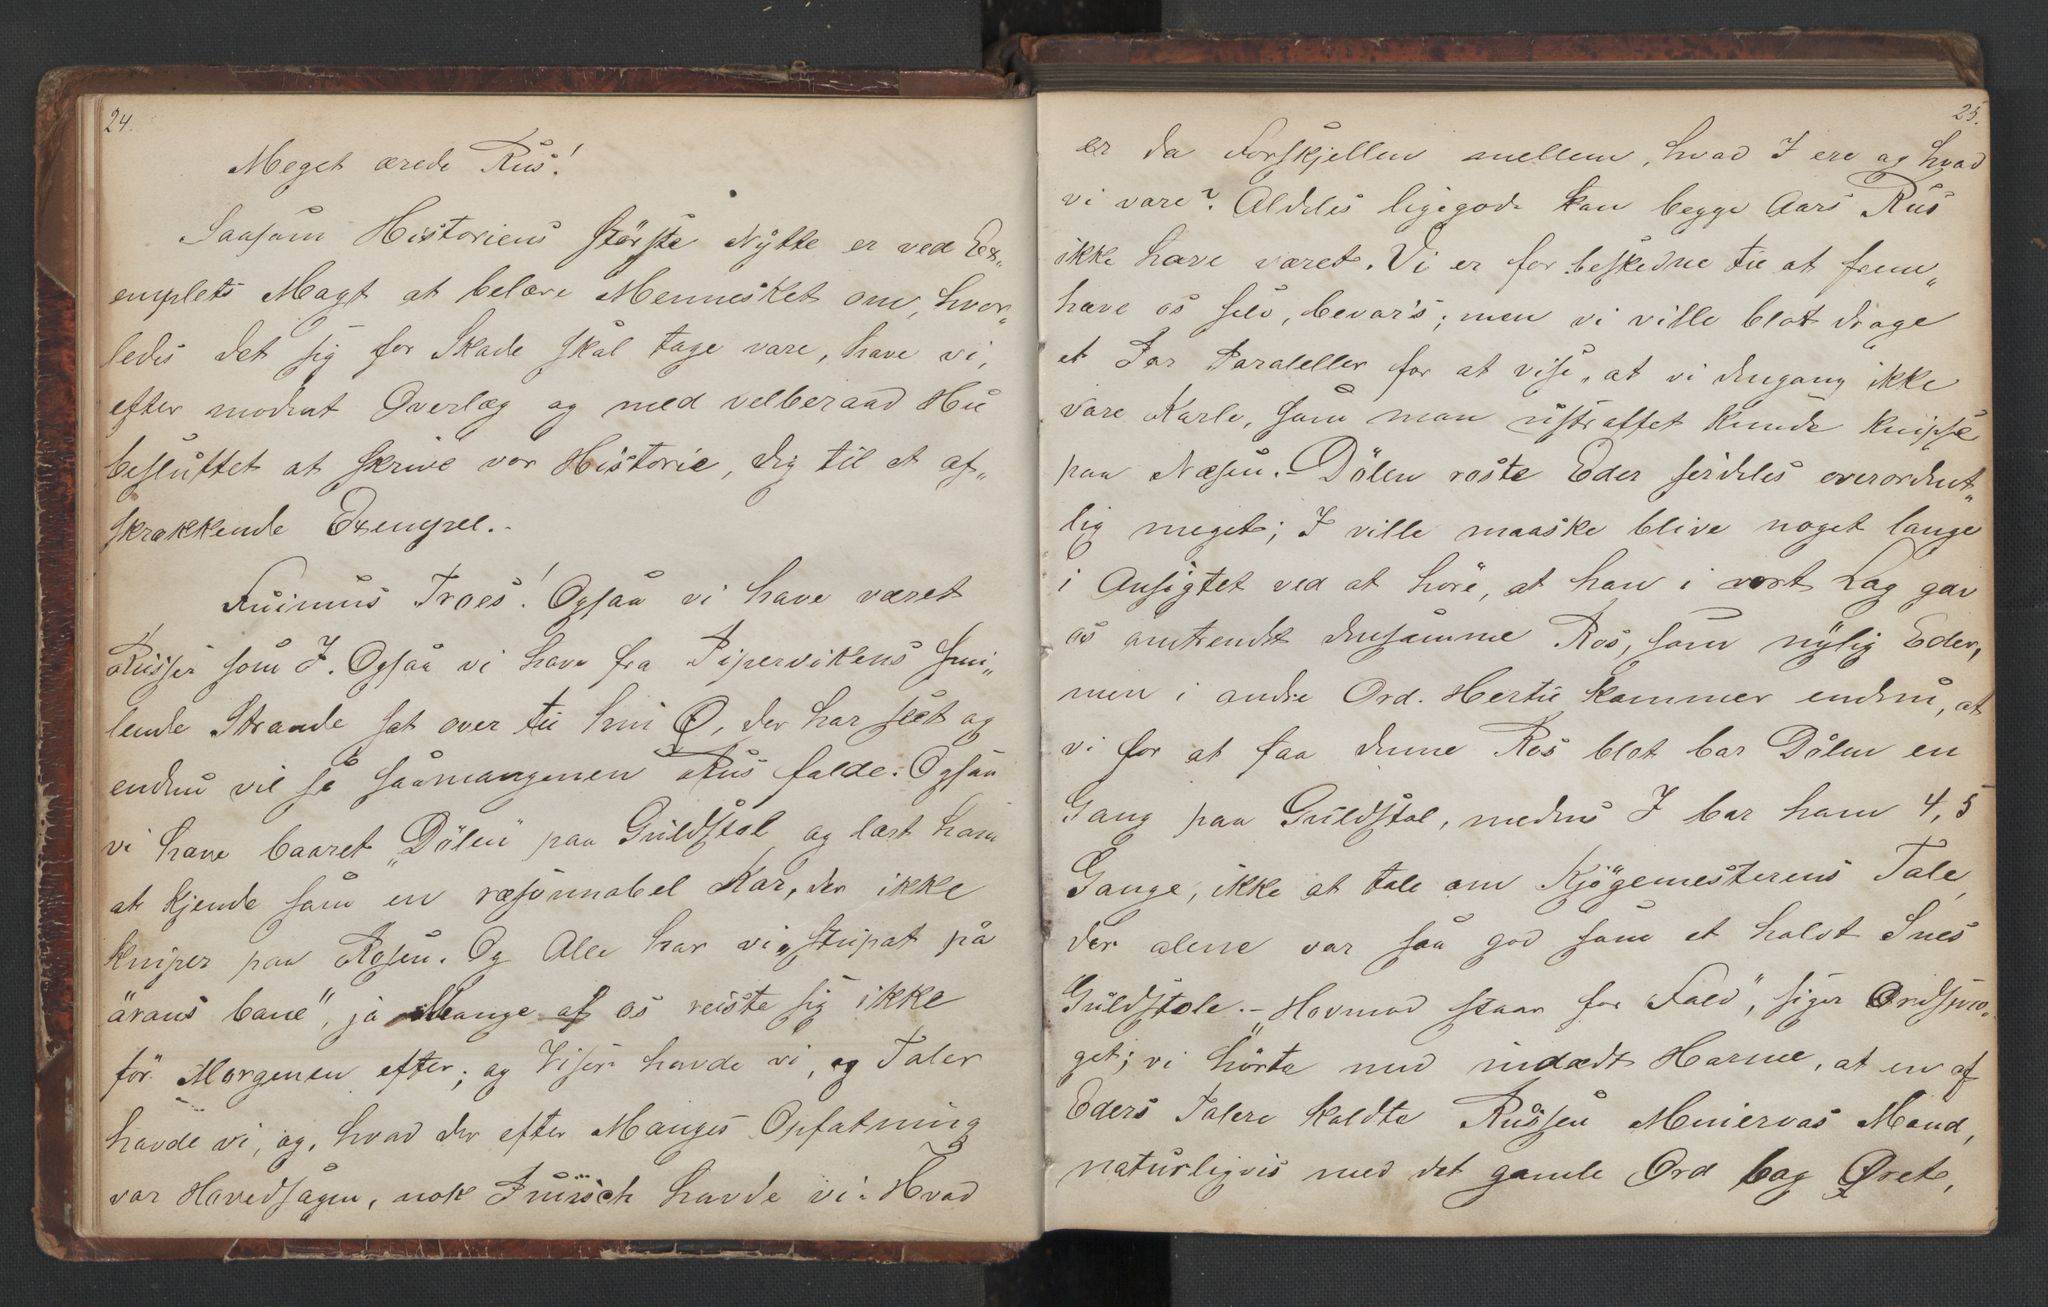 24.
Meget ærede Rus!
Saasom Historiens største Nytte er ved Ex„
emplets Magt at belære Mennesket om, hvor„
ledes det sig for Skade skal tage vare, have vi,
efter modent Overlæg og med velberaad Hu
besluttet at skrive vor Historie, dig til et af„
skrækkende Exempel.-
Fuimus Troes! Ogsaa vi have været
Russer som I. Ogsaa vi have fra Pipervikens smi„
lende Strande sat over til hin Ø, der har seet og
endnu vil se saamangenen Rus falde. Ogsaa
vi have baaret „Dölen" paa Guldstol og lært ham
at kjende som en ræsonnabel Kar, der ikke
kniper paa Rosen. Og Alle har vi „stupat på
ärans bane", ja Mange af os reiste sig ikke
för Morgenen efter; og Viser havde vi, og Taler
havde vi, og, hvad der efter Manges Opfatning
var Hovedsagen, nok Punsch havde vi. Hvad
25.
er da Forskjellen mellem, hvad I ere og hvad
vi vare? Aldeles ligegode kan begge Aars Rus
ikke have været. Vi er for beskedne til at frem„
hæve os selv, bevar's; men vi ville blot drage
et Par Paraleller for at vise, at vi dengang ikke
vare Karle, som man ustraffet kunde knipse
paa Næsen.- Dölen roste Eder serdeles overordent„
lig meget; I ville maaske blive noget lange
i Ansigtet ved at höre, at han i vort Lag gav
os omtrendt densamme Ros, som nylig Eder,
men i andre Ord. Hertil kommer endnu, at
vi for at faa denne Ros blot bar Dölen en
Gang paa Guldstol, medens I bar ham 4, 5
Gange, ikke at tale om Kjögemesterens Tale,
der alene var saa god som et halvt Snes
Guldstole.- „Hovmod staar for Fald", siger Ordspro„
get; vi hörte med indædt Harme, at en af
Eders Talere kaldte Russen Minervas Mand,
naturligvis med det gamle Ord bag Øret,